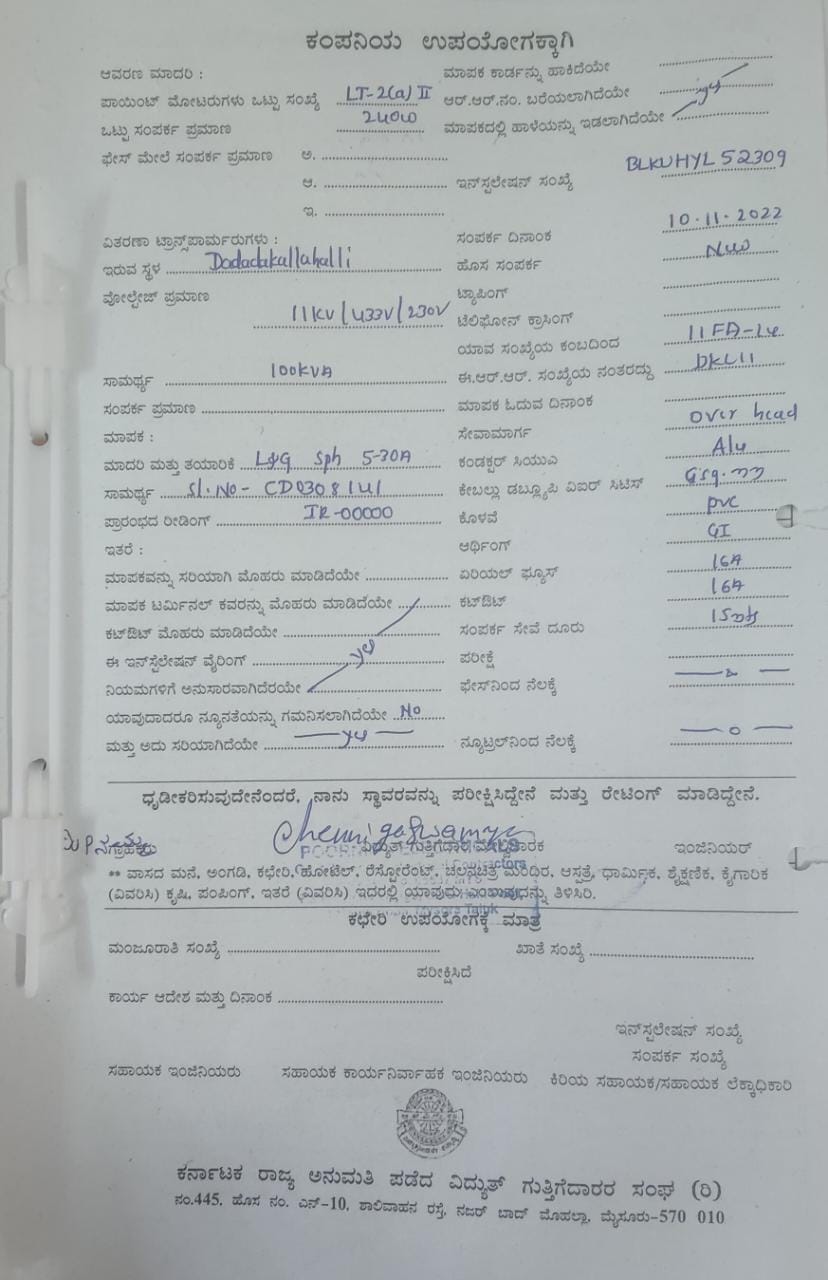 ಕಂಪನಿಯ ಉಪಯೋಗಕ್ಕಾಗಿ
ಆವರಣ ಮಾದರಿ :
ಮಾಪಕ ಕಾರ್ಡನ್ನು ಹಾಕಿದೆಯೇ
ಪಾಯಿಂಟ್ ಮೋಟರುಗಳು ಒಟ್ಟು ಸಂಖ್ಯೆ LT-2(a) II ಆರ್.ಆರ್.ನಂ. ಬರೆಯಲಾಗಿದೆಯೇ
ಒಟ್ಟು ಸಂಪರ್ಕ ಪ್ರಮಾಣ 240W ಮಾಪಕದಲ್ಲಿ ಹಾಳೆಯನ್ನು ಇಡಲಾಗಿದೆಯೇ
ಫೇಸ್ ಮೇಲೆ ಸಂಪರ್ಕ ಪ್ರಮಾಣ ಅ.
ಆ. ಇನ್‌ಸ್ಪಲೇಷನ್ ಸಂಖ್ಯೆ BLKUHYL52309
ಇ.
ವಿತರಣಾ ಟ್ರಾನ್ಸ್‌ಪಾರ್ಮರುಗಳು : ಸಂಪರ್ಕ ದಿನಾಂಕ 10.11.2022
ಇರುವ ಸ್ಥಳ Dodadakallahalli ಹೊಸ ಸಂಪರ್ಕ New
ವೋಲ್ಟೇಜ್ ಪ್ರಮಾಣ 11KV/433V/230V ಟ್ಯಾಪಿಂಗ್
ಟೆಲಿಫೋನ್ ಕ್ರಾಸಿಂಗ್
ಯಾವ ಸಂಖ್ಯೆಯ ಕಂಬದಿಂದ
ಸಾಮರ್ಥ್ಯ 100KVA ಈ.ಆರ್.ಆರ್. ಸಂಖ್ಯೆಯ ನಂತರದ್ದು DKL11
ಸಂಪರ್ಕ ಪ್ರಮಾಣ ಮಾಪಕ ಓದುವ ದಿನಾಂಕ
ಮಾಪಕ : ಸೇವಾಮಾರ್ಗ over head
ಮಾದರಿ ಮತ್ತು ತಯಾರಿಕೆ L&G Sph 5-30A ಕಂಡಕ್ಟರ್ ಸಿಯುಎ Alu
ಸಾಮರ್ಥ್ಯ Sl.No- ಕೇಬಲ್ಲು ಡಬ್ಲ್ಯೂಪಿ ವಿಐರ್ ಸಿಟಿಸ್
ಪ್ರಾರಂಭದ ರೀಡಿಂಗ್ IR-00000 ಕೊಳವೆ PVC
ಇತರೆ : ಆರ್ಥಿಂಗ್ GI
ಮಾಪಕವನ್ನು ಸರಿಯಾಗಿ ಮೊಹರು ಮಾಡಿದೆಯೇ ಏರಿಯಲ್ ಫ್ಯೂಸ್ 16A
ಮಾಪಕ ಟರ್ಮಿನಲ್ ಕವರನ್ನು ಮೊಹರು ಮಾಡಿದೆಯೇ ಕಟ್‌ಔಟ್ 16A
ಕಟ್‌ಔಟ್ ಮೊಹರು ಮಾಡಿದೆಯೇ ಸಂಪರ್ಕ ಸೇವೆ ದೂರು
ಈ ಇನ್‌ಸ್ಪೆಲೇಷನ್ ವೈರಿಂಗ್ ಪರೀಕ್ಷೆ
ನಿಯಮಗಳಿಗೆ ಅನುಸಾರವಾಗಿದೆರಯೇ ಫೇಸ್‌ನಿಂದ ನೆಲಕ್ಕೆ
ಯಾವುದಾದರೂ ನ್ಯೂನತೆಯನ್ನು ಗಮನಿಸಲಾಗಿದೆಯೇ No
ಮತ್ತು ಅದು ಸರಿಯಾಗಿದೆಯೇ ನ್ಯೂಟ್ರಲ್‌ನಿಂದ ನೆಲಕ್ಕೆ
ಧೃಡೀಕರಿಸುವುದೇನೆಂದರೆ, ನಾನು ಸ್ಥಾವರವನ್ನು ಪರೀಕ್ಷಿಸಿದ್ದೇನೆ ಮತ್ತು ರೇಟಿಂಗ್ ಮಾಡಿದ್ದೇನೆ.
ವಿದ್ಯುತ್ ಗುತ್ತಿಗೆದಾರ ಇಂಜಿನಿಯರ್
** ವಾಸದ ಮನೆ, ಅಂಗಡಿ, ಕಛೇರಿ, ಹೋಟೆಲ್, ರೆಸ್ಟೋರೆಂಟ್, ಚಲನಚಿತ್ರ ಮಂದಿರ, ಆಸ್ಪತ್ರೆ, ಧಾರ್ಮಿಕ, ಶೈಕ್ಷಣಿಕ, ಕೈಗಾರಿಕ
(ವಿವರಿಸಿ) ಕೃಷಿ, ಪಂಪಿಂಗ್, ಇತರೆ (ವಿವರಿಸಿ) ಇದರಲ್ಲಿ ಯಾವುದು ಎಂಬುವುದನ್ನು ತಿಳಿಸಿರಿ.
ಕಛೇರಿ ಉಪಯೋಗಕ್ಕೆ ಮಾತ್ರ
ಮಂಜೂರಾತಿ ಸಂಖ್ಯೆ ಖಾತೆ ಸಂಖ್ಯೆ
ಪರೀಕ್ಷಿಸಿದೆ
ಕಾರ್ಯ ಆದೇಶ ಮತ್ತು ದಿನಾಂಕ
ಇನ್‌ಸ್ಪಲೇಷನ್ ಸಂಖ್ಯೆ
ಸಂಪರ್ಕ ಸಂಖ್ಯೆ
ಸಹಾಯಕ ಇಂಜಿನಿಯರು ಸಹಾಯಕ ಕಾರ್ಯನಿರ್ವಾಹಕ ಇಂಜಿನಿಯರು ಕಿರಿಯ ಸಹಾಯಕ/ಸಹಾಯಕ ಲೆಕ್ಕಾಧಿಕಾರಿ
ಕರ್ನಾಟಕ ರಾಜ್ಯ ಅನುಮತಿ ಪಡೆದ ವಿದ್ಯುತ್ ಗುತ್ತಿಗೆದಾರರ ಸಂಘ (ರಿ)
ನಂ.445, ಹೊಸ ನಂ. ಎನ್-10, ಶಾಲಿವಾಹನ ರಸ್ತೆ, ನಜರ್ ಬಾದ್ ಮೊಹಲ್ಲಾ, ಮೈಸೂರು-570 010